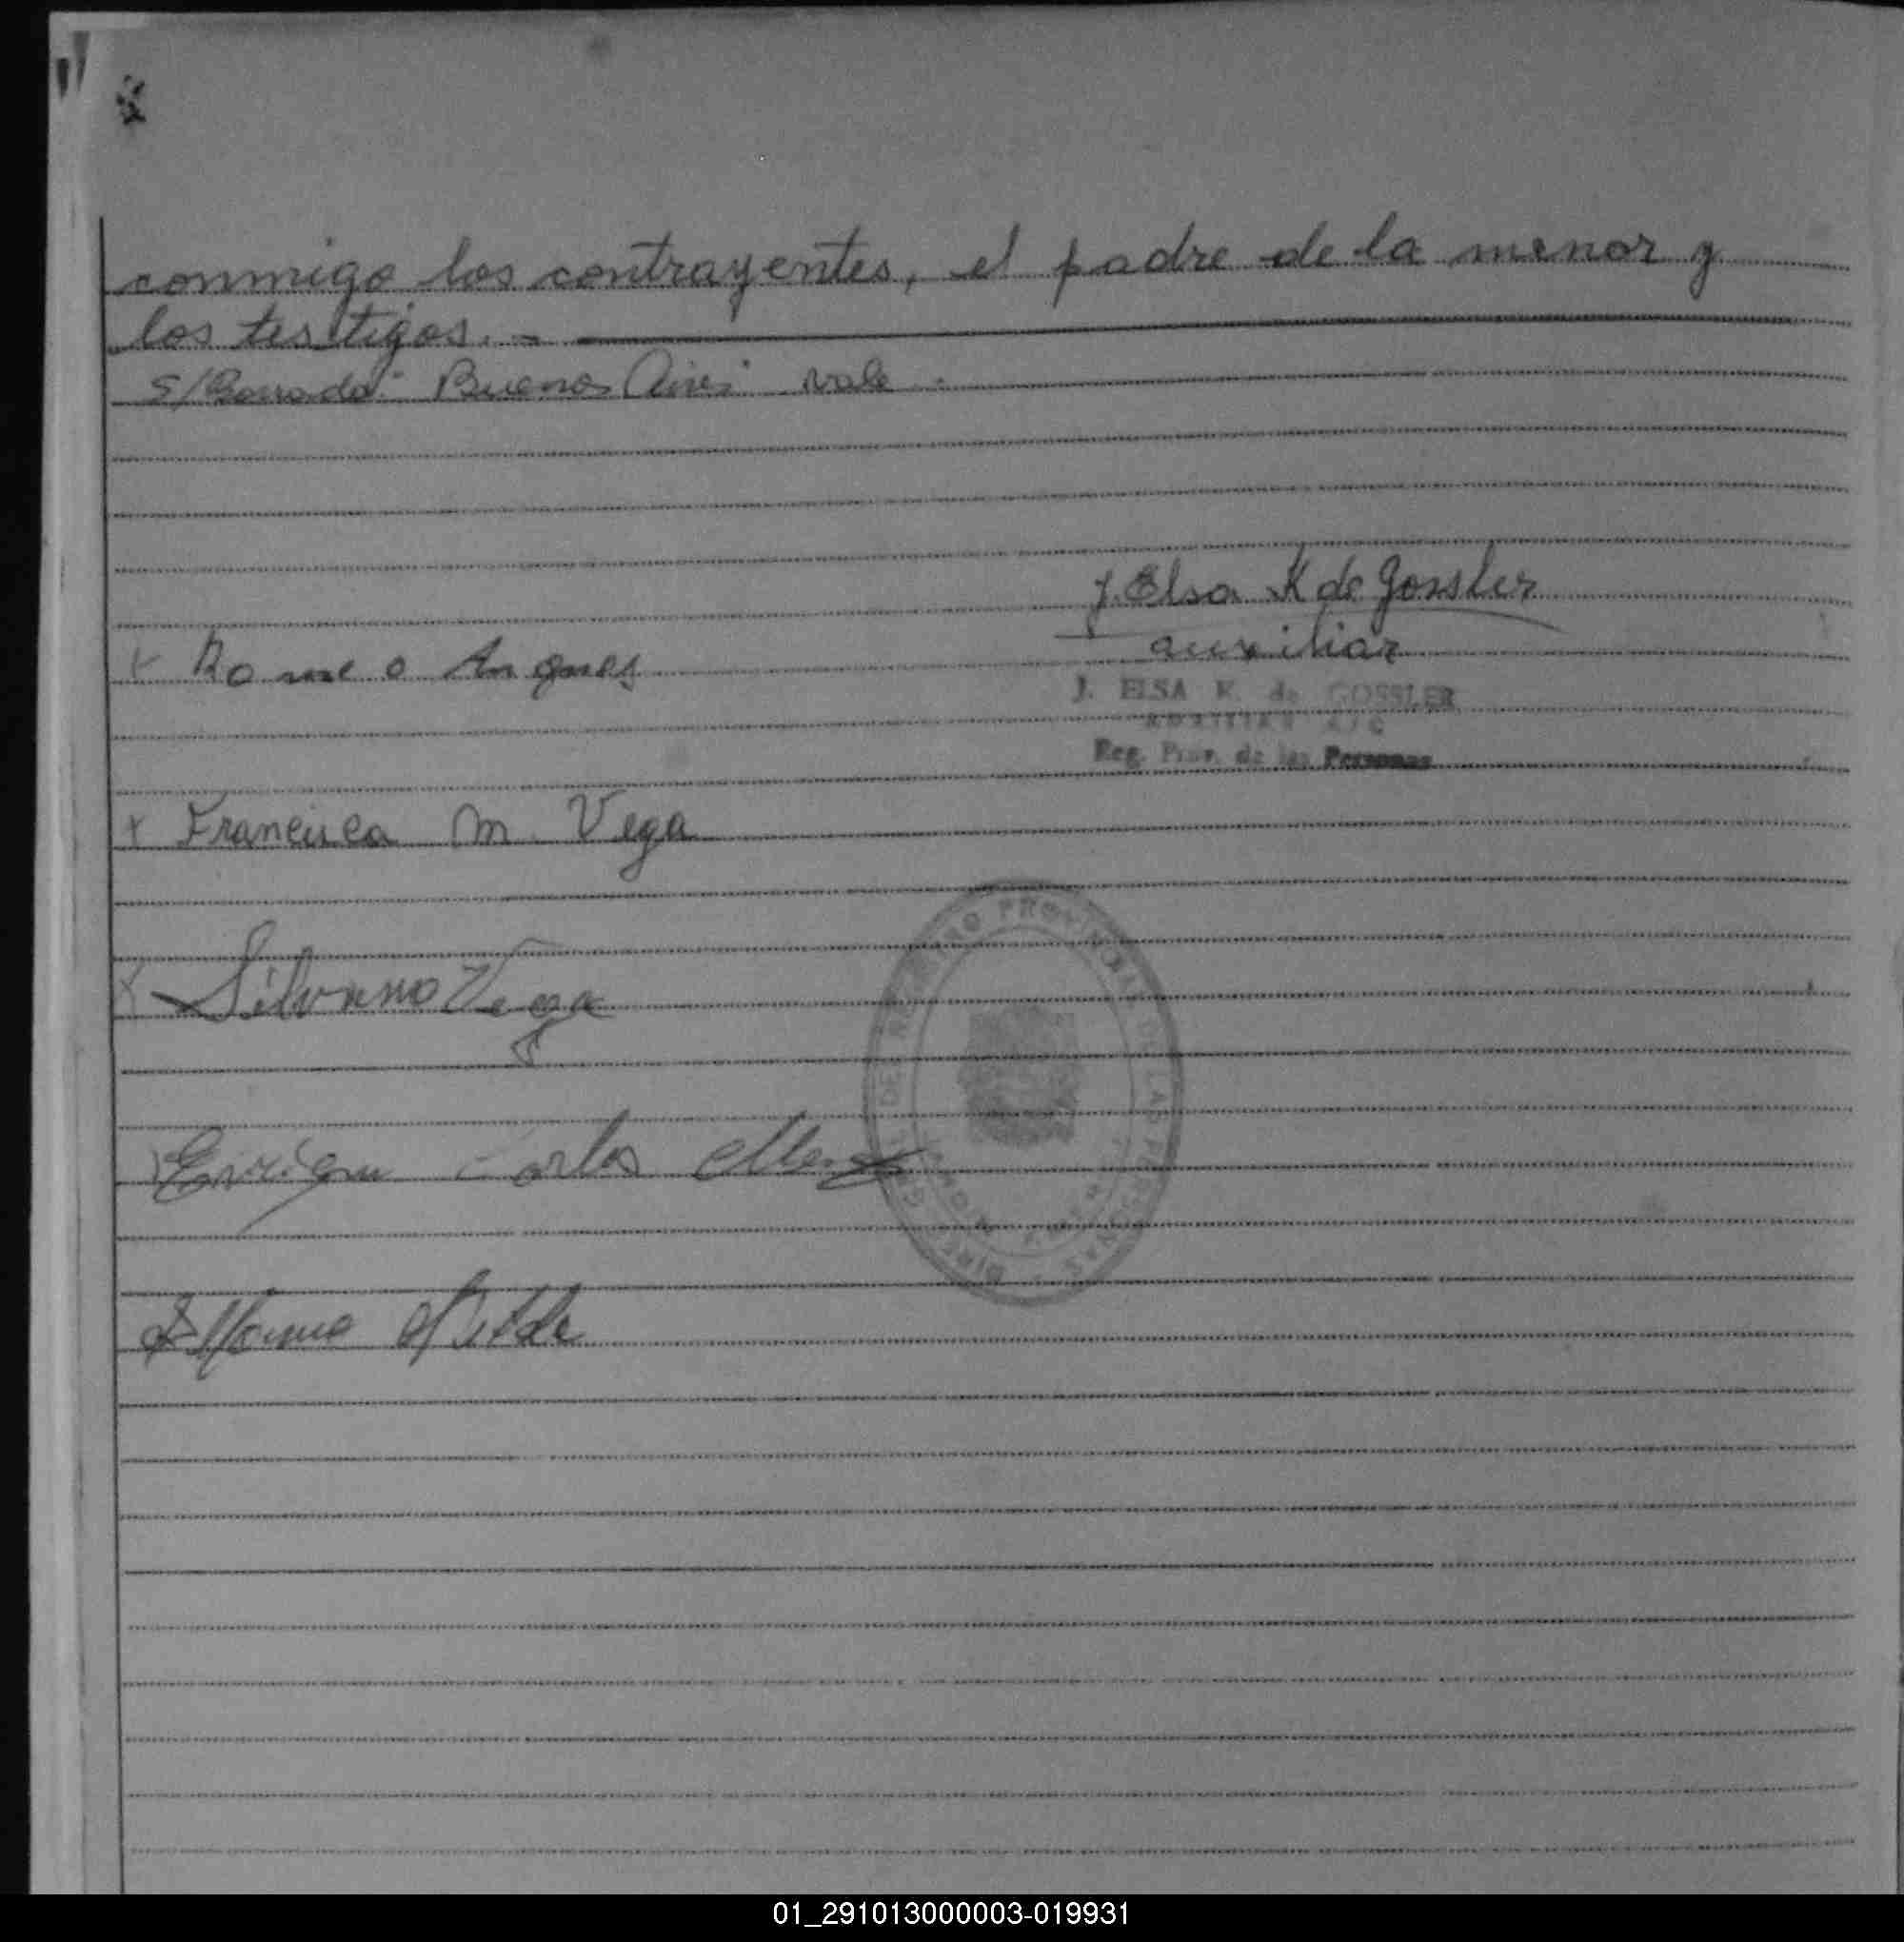 conmigo los contrayentes, el padre de la menor y
los testigos. -
S/Borrado: Buenos Aires vale -
J. Elsa K de Gossler
auxiliar
x Romeo
J. ELSA K. de GOSSLER
AUXILIAR A/C
Reg. Prov. de las Personas
x Francisca M. Vega
x Silvano Vega
Carlos
DIREC. GRAL. DEL REGISTRO PROVINCIAL DE LAS PERSONAS
01_291013000003-019931